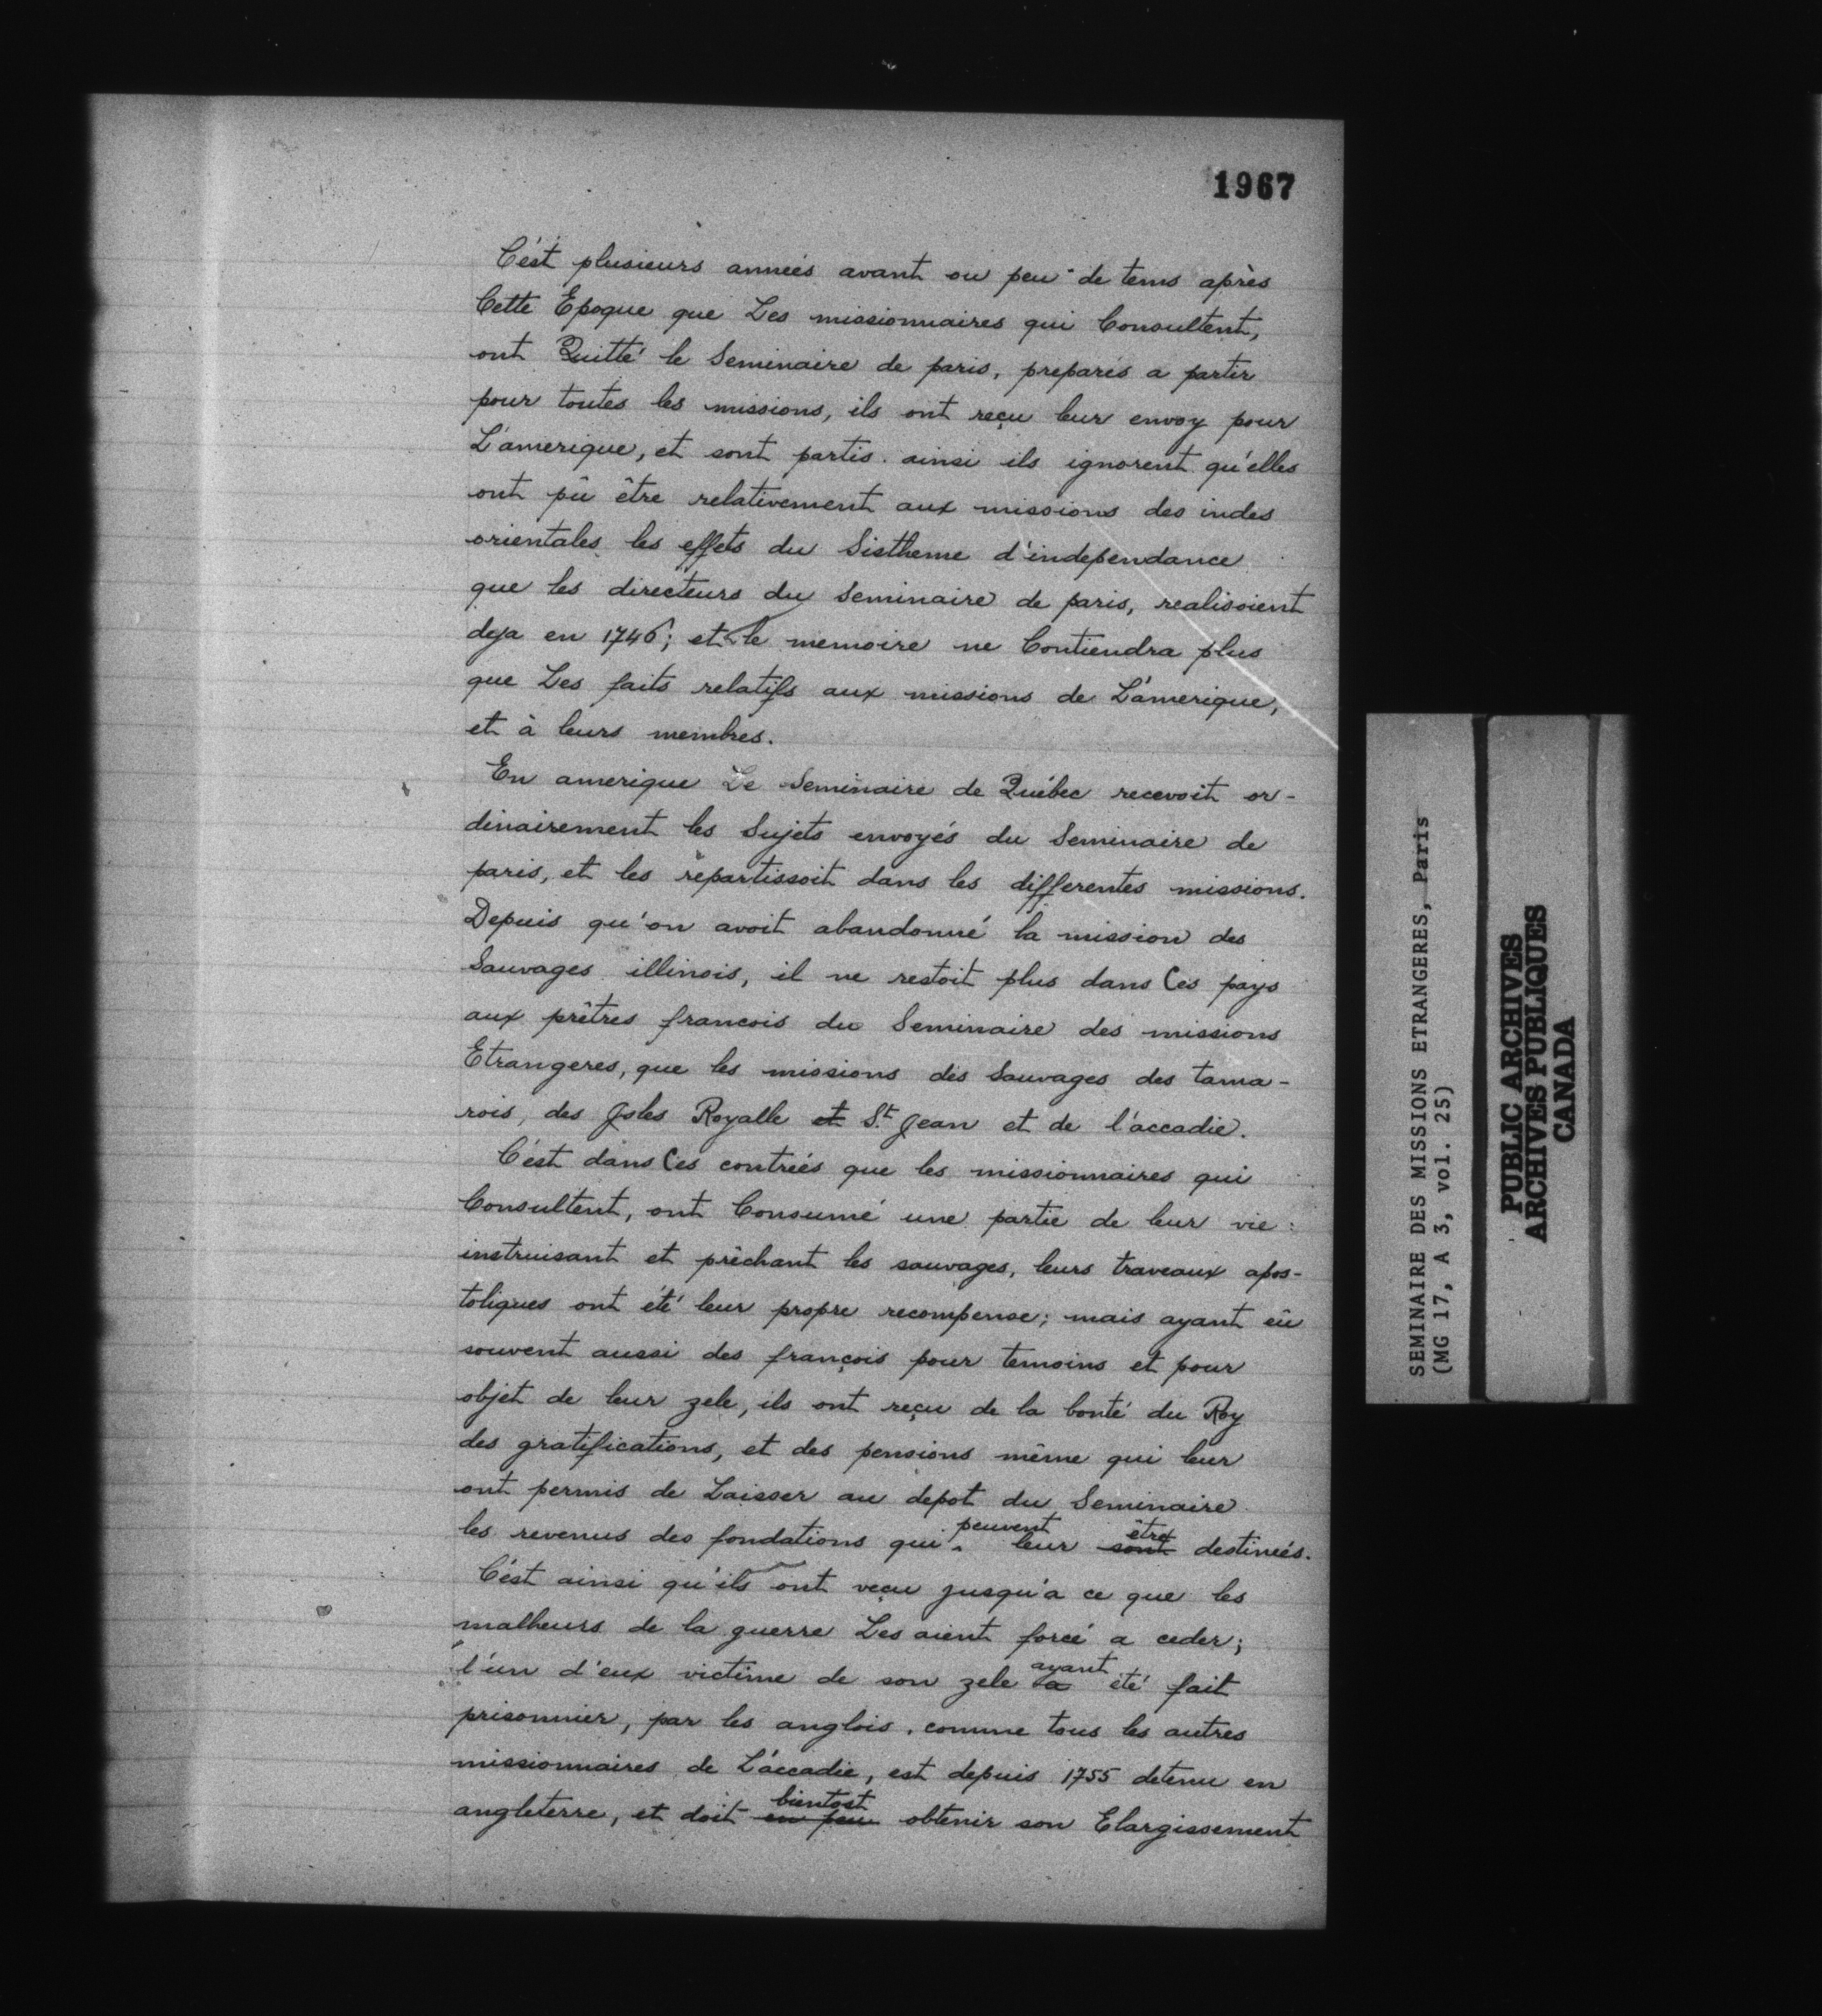 1967
C'ést plusieurs anneés avant ou peu de tems après
Cette Epoque que Les missionnaires qui Consultent,
ont Quitté le Seminaire de paris, preparés a partir
pour toutes les missions, ils ont reçu leur envoy pour
L'amerique, et sont partis. ainsi ils ignorent qu'elles
ont pû être relativement aux missions des indes
orientales les effets du Sistheme d'independance
que les directeurs du Seminaire de paris, realisoient
deja en 1746; et le memoire ne Contiendra plus
que Les faits relatifs aux missions de L'amerique,
et à leurs membres.
En amerique Le Seminaire de Québec recevoit or-
dinairement les Sujets envoyés du Seminaire de
paris, et les repartissoit dans les differentes missions.
Depuis qu'on avoit abandonné la mission des
Sauvages illinois, il ne restoit plus dans Ces pays
aux prêtres francois du Seminaire des missions
Etrangeres, que les missions des Sauvages des tama-
rois, des Isles Royalle et St Jean et de l'accadie.
C'est dans Ces contreés que les missionnaires qui
Consultent, ont Consumé une partie de leur vie:
instruisant et prêchant les sauvages, leurs traveaux apos-
toliques ont été leur propre recompense; mais ayant eû
souvent aussi des françois pour temoins et pour
objet de leur zele, ils ont reçu de la bonté du Roy
des gratifications, et des pensions même qui leur
ont permis de Laisser au depot du Seminaire
les revenus des fondations qui peuvent leur sont être destineés.
C'ést ainsi qu'ils ont vecu jusqu'a ce que les
malheurs de la guerre Les aient forcé a ceder;
l'un d'eux victime de son zele a ayant été fait
prisonnier, par les anglois, comme tous les autres
missionnaires de L'accadie, est depuis 1755 detenu en
angleterre, et doit en peu bientost obtenir son Elargissement
SEMINAIRE DES MISSIONS ETRANGERES, Paris
(MG 17, A 3, vol. 25)
PUBLIC ARCHIVES
ARCHIVES PUBLIQUES
CANADA